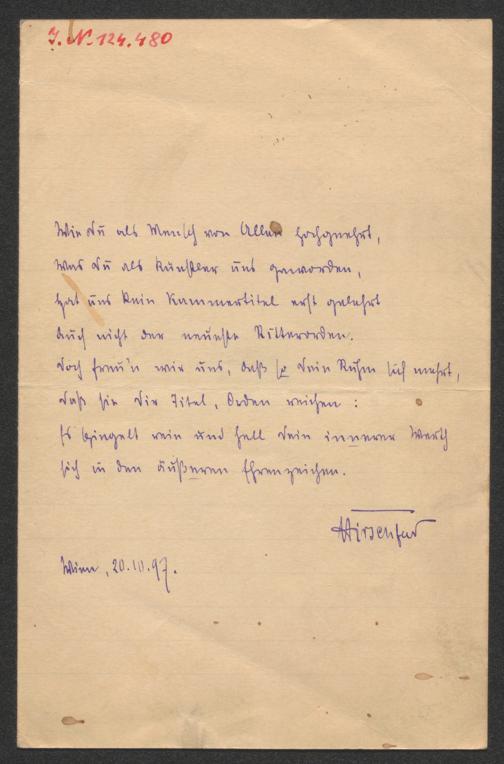 I. N. 124.480
Wie Du als Mensch von Allen hochgeehrt,
Was Du als Künstler uns geworden,
Hat uns kein Kammertitel erst gelehrt
Auch nicht der neueste Ritterorden.
Doch freu'n wir uns, daß so Dein Ruhm sich mehrt,
Daß sie Dir Titel, Orden reichen:
Es spiegelt rein und hell Dein innerer Werth
sich in den äußeren Ehrenzeichen.
Wien, 20.10.97.